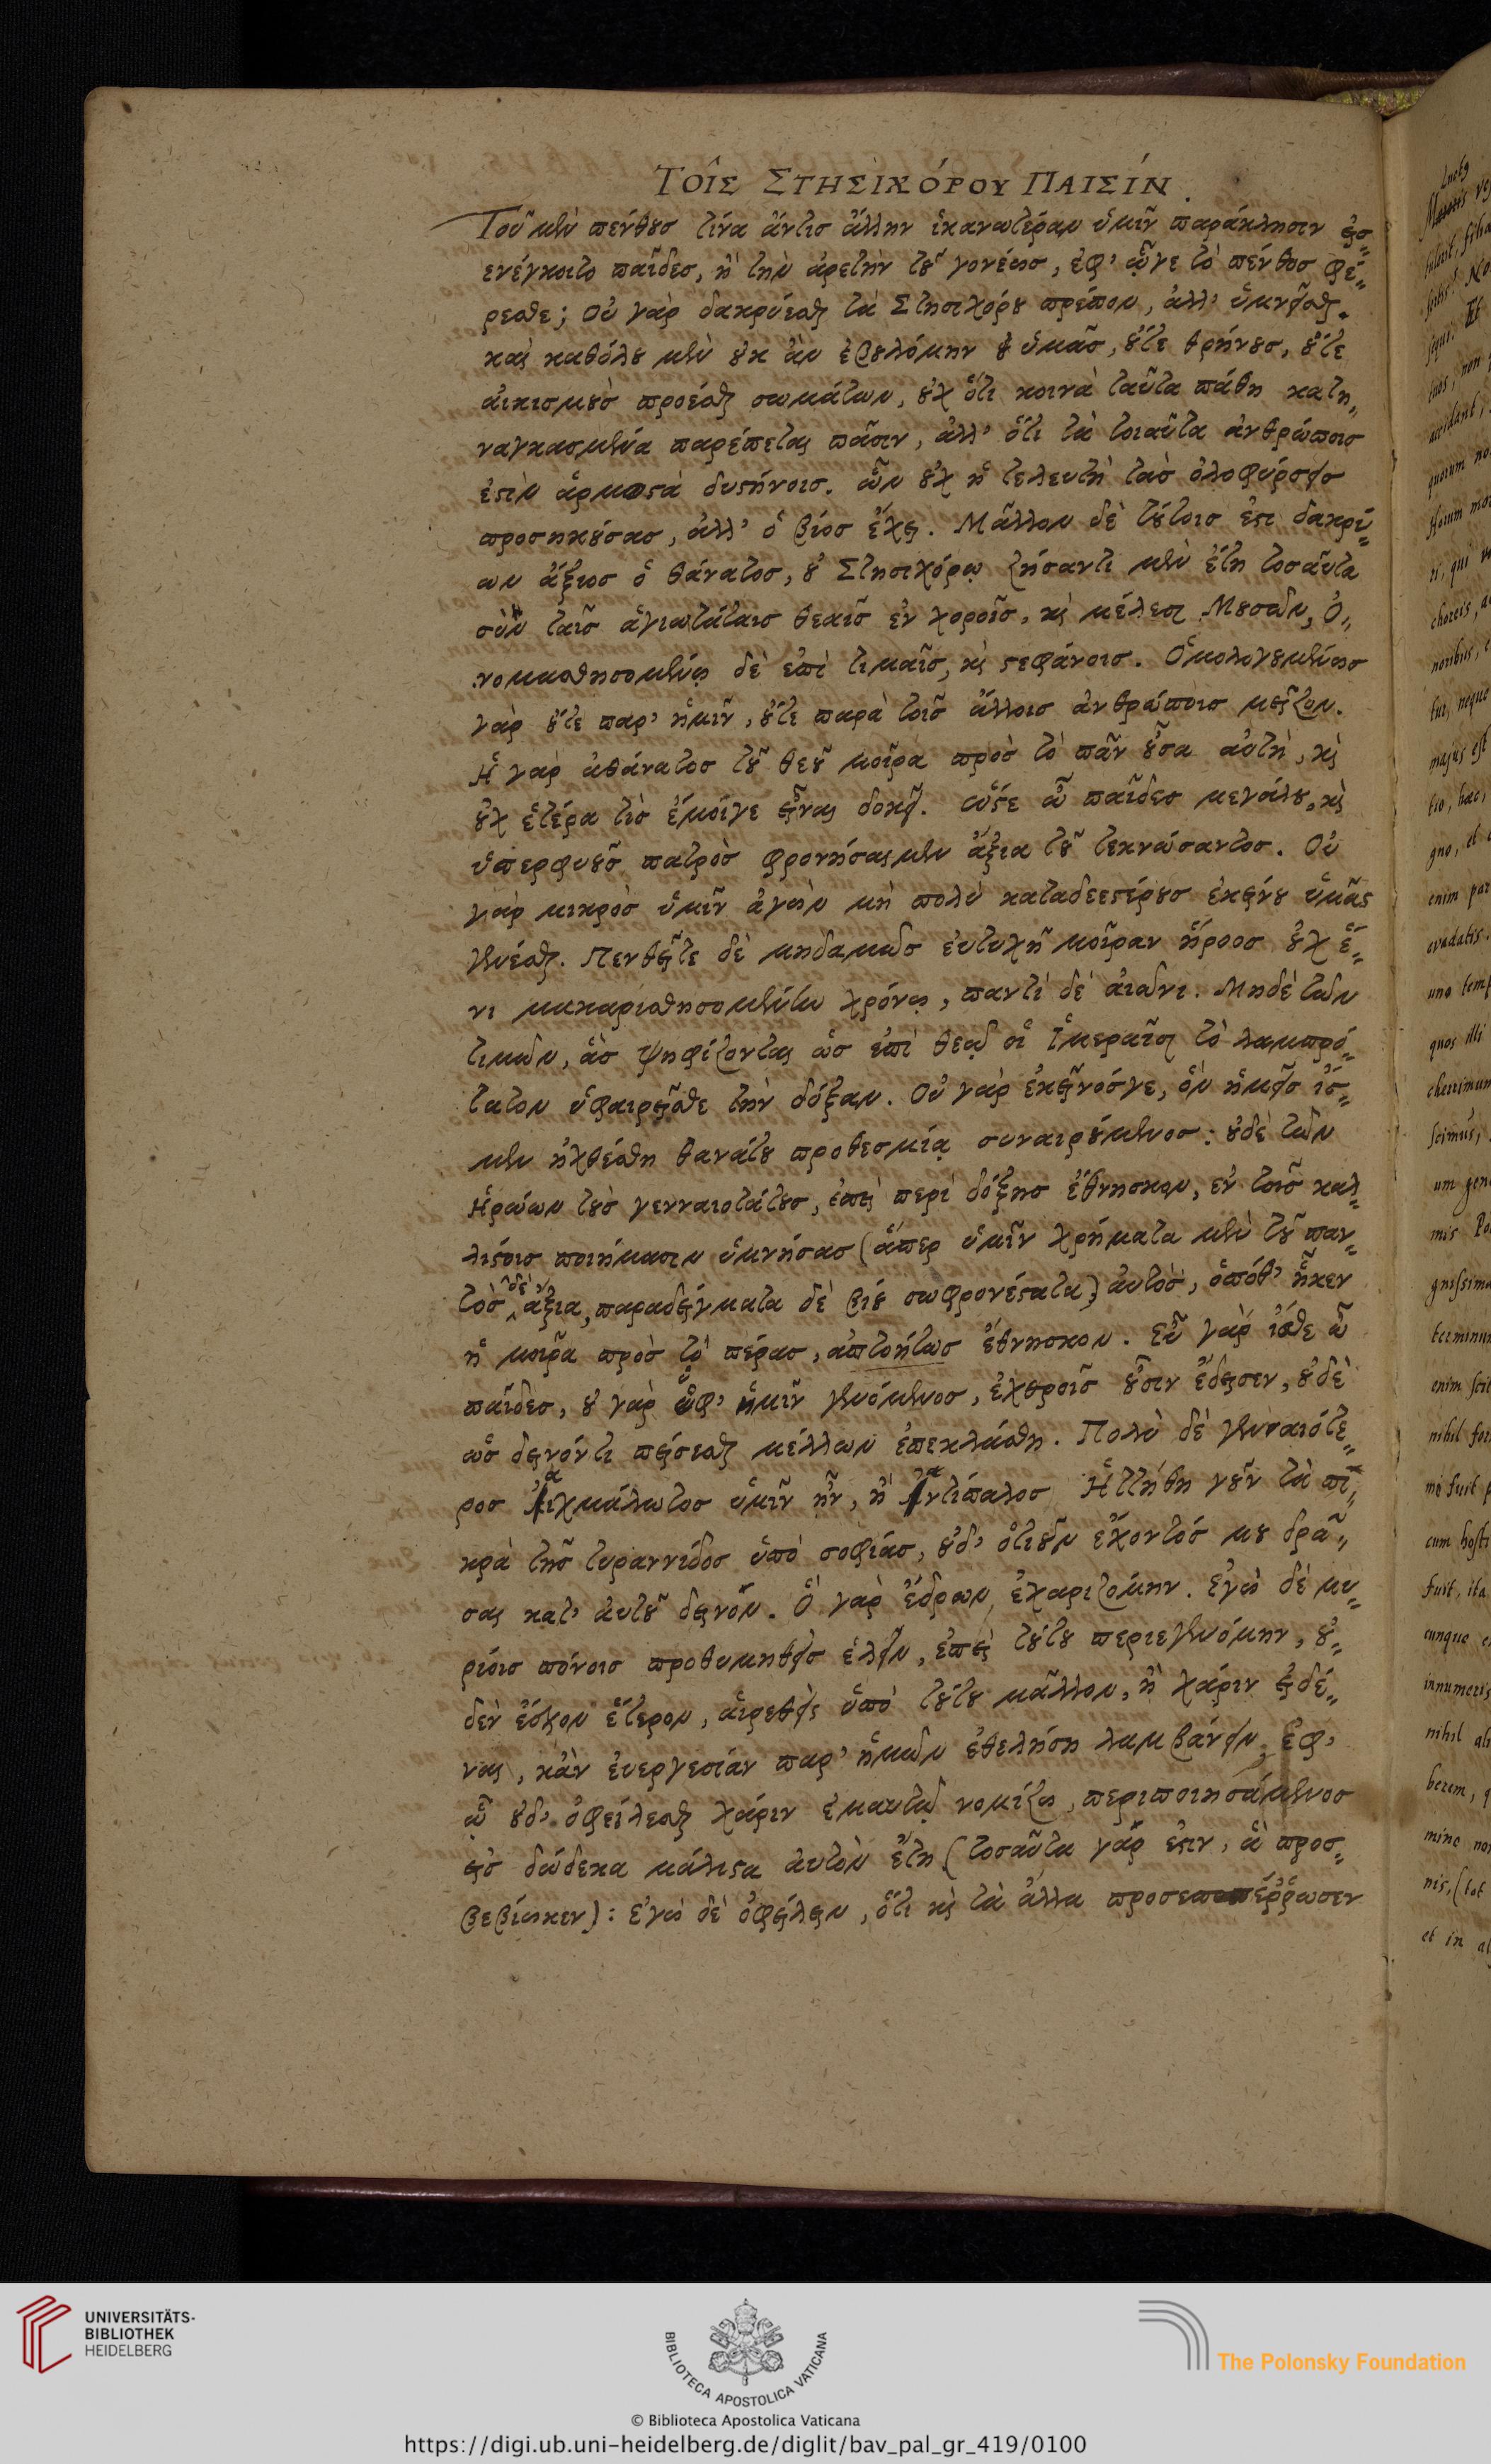 ΤΟΙ͂Σ ΣΤΗΣΙΧΌΡΟΥ ΠΑΙΣΊΝ.
Τοῦ μὲν πένθουσ τίνα ἄντισ ἄλλην ἱκανωτέραν ὑμῖν παράκλησιν εἰσ-
ενέγκοιτο παῖδεσ, ἢ τὴν ἀρετὴν τοῦ γονέωσ, ἐφ' ᾧγε τὸ πένθοσ φέ-
ρεσθε; Οὐ γὰρ δακρύεσθαι τὰ Στησιχόρου πρέπον, ἀλλ' ὑμνεῖσθαι.
καὶ καθόλου μὲν οὐκ ἂν ἐβουλόμην οὐ ὑμᾶσ, οὔτε θρήνουσ, οὔτε
αἰκισμοὺσ προέσθαι σωμάτων, οὐχ ὅτι κοινὰ ταῦτα πάθη κατη-
ναγκασμένα παρέπεται πᾶσιν, ἀλλ' ὅτι τὰ τοιαῦτα ἀνθρώποισ
ἐστὶν ἁρμοστὰ δυστήνοισ. ὧν οὐχ ἡ τελευτὴ τὰσ ὀλοφύρσεισ
προσηκούσασ, ἀλλ' ὁ βίοσ ἔχει. Μᾶλλον δὲ τούτοισ ἐστι δακρύ-
ων ἄξιοσ ὁ θάνατοσ, οὐ Στησιχόρῳ ζήσαντι μὲν ἔτη τοσαῦτα
σὺν ταῖσ ἁγιωτάταισ θεαῖσ ἐν χοροῖσ, καὶ μέλεσι Μουσῶν, Ὀ-
νομασθησομένῳ δὲ ἐπὶ τιμαῖσ, καὶ στεφάνοισ. Ὁμολογουμένωσ
γὰρ οὔτε παρ' ἡμῖν, οὔτε παρὰ τοῖσ ἄλλοισ ἀνθρώποισ μεῖζον.
Ἡ γὰρ ἀθάνατοσ τοῦ θεοῦ μοῖρα πρὸσ τὸ πᾶν οὖσα αὐτὴ, καὶ
οὐχ ἑτέρα τὶσ ἔμοίγε εἶναι δοκεῖ. ὥστε ὦ παῖδεσ μεγάλου, καὶ
ὑπερφυοῦσ πατρὸσ φρονήσαιμεν ἄξια τοῦ τεκνώσαντοσ. Οὐ
γὰρ μικρὸσ ὑμῖν ἀγὼν μὴ πολὺ καταδεεστέρουσ ἐκείνου ὑμᾶς
γενέσθαι. Πενθεῖτε δὲ μηδαμῶσ εὐτυχῆ μοῖραν ἥρωοσ οὐχ ἑ-
νι μακαρισθησομένην χρόνῳ, παντὶ δὲ αἰῶνι. Μηδὲ τῶν
τιμῶν, ἃσ ψηφίζονται ὡσ ἐπὶ θεῷ οἱ Ἱμεραῖοι τὸ λαμπρό-
τατον ὑφαιρεῖσθε τὴν δόξαν. Οὐ γὰρ ἐκεῖνόσγε, ὃν ἡμεῖσ ἴσ-
μεν ἠχθέσθη θανάτου προθεσμίᾳ συναιρούμενοσ: οὐδὲ τῶν
Ἡρώων τοὺσ γενναιοτάτουσ, ἐπεὶ περὶ δόξησ ἔθνησκον, ἐν τοῖσ καλ-
λίστοισ ποιήμασιν ὑμνήσασ (ἅπερ ὑμῖν χρήματα μὲν τοῦ παν-
τὸσ δὲ ἄξια, παραδείγματα δὲ βίου σωφρονέστατα) ἀυτὸσ, ὁπόθ' ἧκεν
ἡ μοῖρα πρὸσ τὸ πέρασ, ἀπτοήτωσ ἔθνησκον. Εὖ γὰρ ἴσθε ὦ
παῖδεσ, οὐ γὰρ ὑφ' ἡμῖν γενόμενοσ, ἐχθροῖσ οὖσιν ἔδεισεν, οὐδὲ
ὡσ δεινόν τι πείσεσθαι μέλλων ἐπεκλάσθη. Πολὺ δὲ γενναιότε-
ροσ αἰχμάλωτοσ ὑμῖν ἦν, ἢ ἀντίπαλοσ Ἡττήθη γοῦν τὰ πι-
κρὰ τῆσ τυραννίδοσ ὑπὸ σοφίασ, οὐδ' ὁτιοῦν ἔχοντόσ μου δρᾶ-
σαι κατ' ἀυτοῦ δεινόν. Ὃ γὰρ ἔδρων, ἐχαριζόμην. Ἐγὼ δὲ μυ-
ρίοισ πόνοισ προθυμηθεὶσ ἑλεῖν, ἐπεὶ τούτου περιεγενόμην, οὐ-
δὲν ἔσχον ἕτερον, αἱρεθεὶς ὑπὸ τούτου μᾶλλον, ἢ χάριν εἰδέ-
ναι, κἂν ἐυεργεσίαν παρ' ἡμῶν ἐθελήσῃ λαμβάνειν, ἐφ'
ᾧ οὐδ' ὀφείλεσθαι χάριν ἐμαυτῷ νομίζω, περιποιησάμενοσ
εἰσ δώδεκα μάλιστα ἀυτὸν ἔτη (τοσαῦτα γάρ ἐστιν, ἃ προσ-
βεβίωκεν): ἐγὼ δὲ ὀφείλειν, ὅτι καὶ τὰ ἄλλα προσεπέῤῥωσεν
UNIVERSITÄTS-
BIBLIOTHEK
HEIDELBERG
BIBLIOTECA APOSTOLICA VATICANA
© Biblioteca Apostolica Vaticana
The Polonsky Foundation
https://digi.ub.uni-heidelberg.de/diglit/bav_pal_gr_419/0100